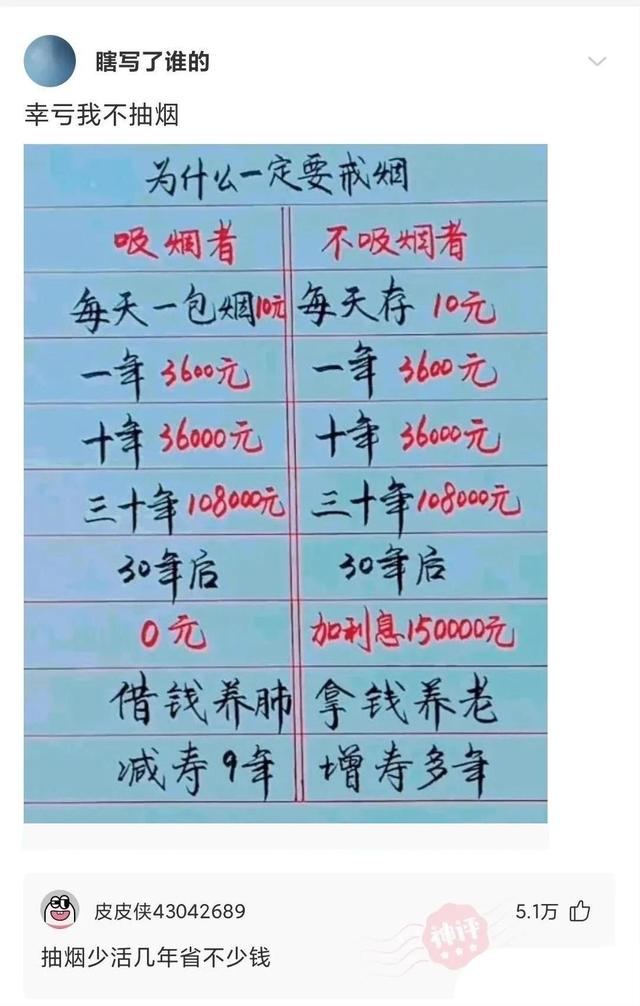 瞎写了谁的
幸亏我不抽烟
为什么一定要戒烟
吸烟者 不吸烟者
每天一包烟10元 每天存 10元
一年 3600元 一年 3600元
十年 36000元 十年 36000元
三十年108000元 三十年108000元
30年后 30年后
0元 加利息150000元
借钱养肺 拿钱养老
减寿9年 增寿多年
皮皮侠43042689 5.1万
神评
抽烟少活几年省不少钱